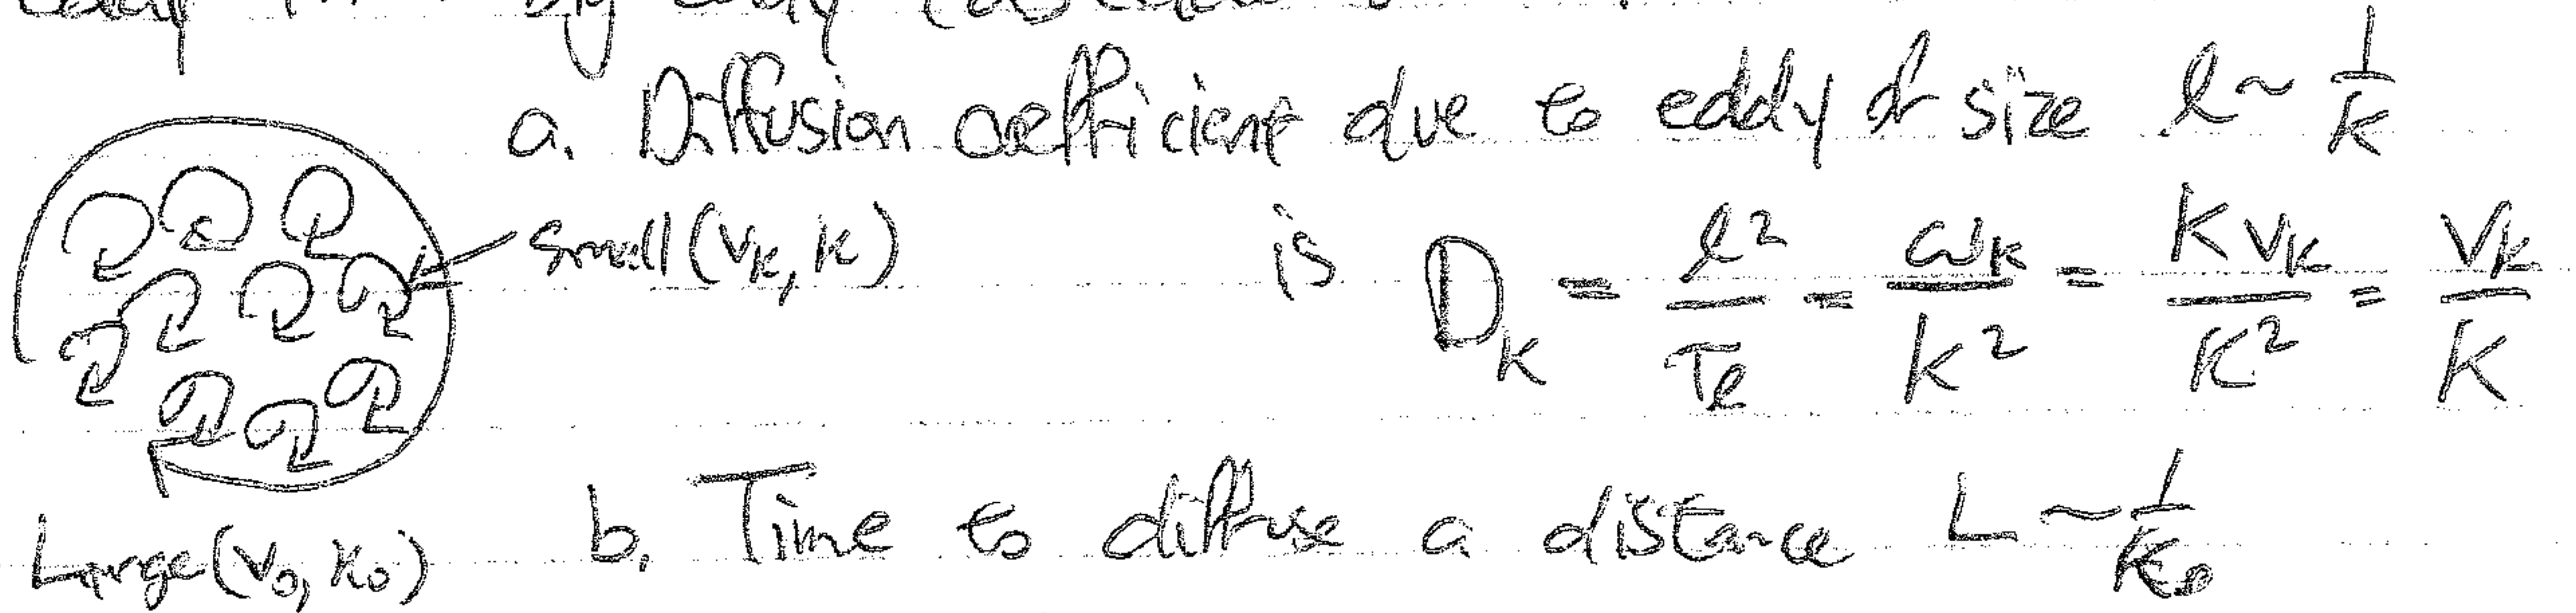 big eddy
a. Diffusion coefficient due to eddy of size l ~ 1/k
small (v_k, k)
is D_k = l²/τ_l = ω_k/k² = k v_k/k² = v_k/k
Large (v_0, k_0)
b. Time to diffuse a distance L ~ 1/k_0